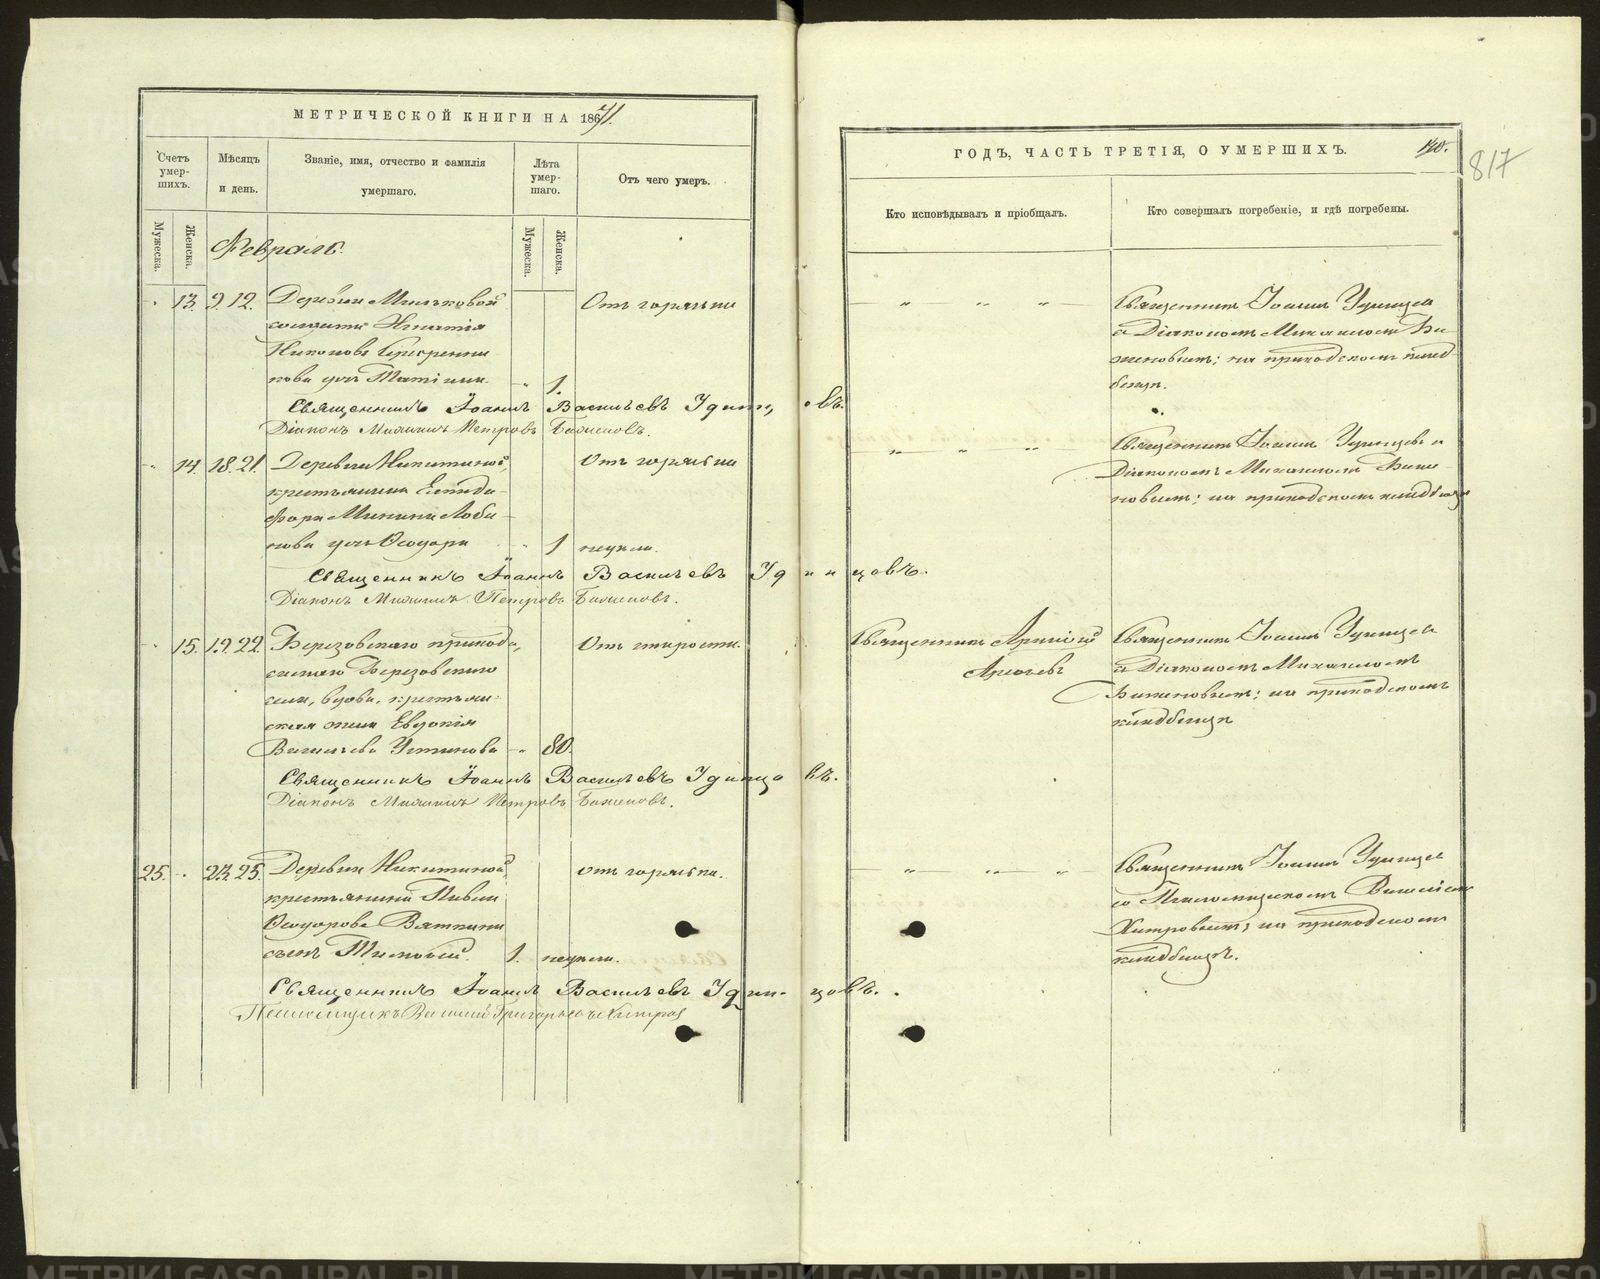 МЕТРИЧЕСКОЙ КНИГИ НА 1871.
Счетъ умер-шихъ.
Мѣсяцъ и день.
Званіе, имя, отчество и фамилія умершаго.
Лѣта умер-шаго.
Отъ чего умеръ.
Мужеска.
Женска.
Мужеска.
Женска.
Февраль.
13. 9. 12. Деревни Мильковой Отъ горячки
солдата Игнатія
Никонова
дочь 1.
Священникъ Іоаннъ Васильевъ Удинцовъ.
Діаконъ Михаилъ Петровъ Баженовъ.
14. 18. 21. Деревни Никитиной, Отъ горячки
крестьянина Епиди-
фора Минина Лоба-
нова дочь Ѳеодора 1 недѣли.
Священникъ Іоаннъ Васильевъ Удинцовъ.
Діаконъ Михаилъ Петровъ Баженовъ.
15. 19. 22. Березовскаго прихода, Отъ старости.
самаго Березовскаго
села, вдова, крестьян-
ская жена Евдокія
Васильева Устинова 80.
Священникъ Іоаннъ Васильевъ Удинцовъ.
Діаконъ Михаилъ Петровъ Баженовъ.
25. 23. 25. Деревни Никитиной, Отъ горячки.
крестьянина Павла
Ѳеодорова Вяткина
сынъ Тимоѳей. 1. недѣли.
Священникъ Іоаннъ Васильевъ Удинцовъ.
Псаломщикъ Василій Григорьевъ Хитровъ
ГОДЪ, ЧАСТЬ ТРЕТІЯ, О УМЕРШИХЪ.
140.
817
Кто исповѣдывалъ и пріобщалъ.
Кто совершалъ погребеніе, и гдѣ погребены.
Священникъ Іоаннъ Удинцевъ
съ Діакономъ Михаиломъ Ба-
женовымъ; на приходскомъ клад-
бищѣ.
Священникъ Іоаннъ Удинцевъ и
Діакономъ Михаиломъ Баже-
новымъ; на приходскомъ кладбищѣ
Священникъ
Священникъ Іоаннъ Удинцевъ
съ Діакономъ Михаиломъ
Баженовымъ; на приходскомъ
кладбищѣ
Священникъ Іоаннъ Удинцевъ
со Псаломщикомъ Василіемъ
Хитровымъ; на приходскомъ
кладбищѣ.
METRIKI.GASO-URAL.RU